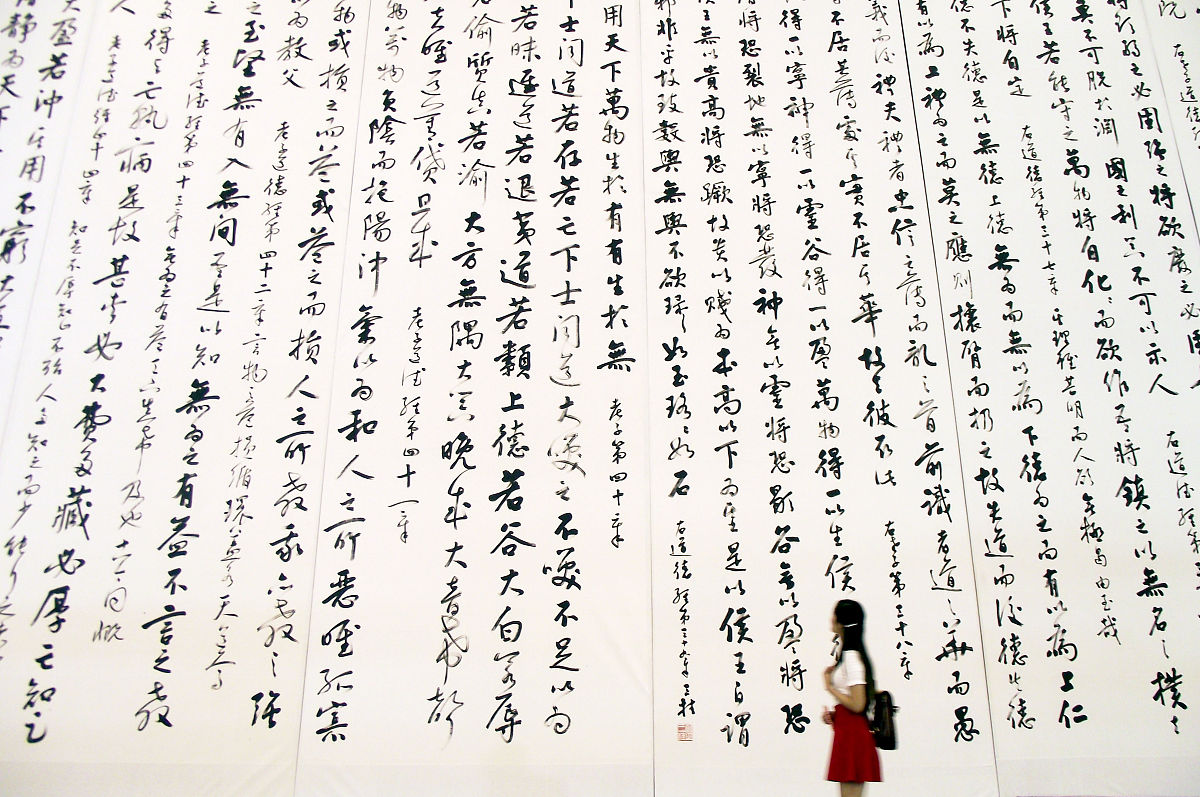 之必固強之將欲廢之必固
莫不可脫於淵國之利器不可以示人
侯王若能守之萬物將自化而欲作吾將鎮之以無名之樸之
下將自定 右道德經第三十七章
德不失德是以無德上德無為而無以為下德為之而有以為上仁
有以為上禮為之而莫之應則攘臂而扔之故失道而後德失德
義而後禮夫禮者忠信之薄而亂之首前識者道之華而愚
不居其薄處其實不居其華故去彼取此 右老子第三十八章
得一以寧神得一以靈谷得一以盈萬物得一以生侯
將恐裂地無以寧將恐發神無以靈將恐歇谷無以盈將恐
侯王無以貴高將恐蹶故貴以賤為本高以下為基是以侯王自謂
邪非乎故致數輿無輿不欲琭琭如玉珞珞如石 右道德經第三十九章
用天下萬物生於有有生於無 老子第四十章
士聞道若存若亡下士聞道大笑之不笑不足以為
若昧進道若退夷道若纇上德若谷大白若辱
若偷質真若渝大方無隅大器晚成大音希聲
夫唯道善貸且成 老子道德經第四十一章
物萬物負陰而抱陽沖氣以為和人之所惡唯孤寡
物或損之而益或益之而損人之所教我亦教之強
以為教父 老子道德經第四十二章 言物之益損循環
之至堅無有入無間吾是以知無為之有益不言之教
之 老子道德經第四十三章
得與亡孰病是故甚愛必大費多藏必厚亡知足
人 老子道德經第四十四章 知足不辱知止不殆
大盈若沖其用不窮大直
清靜為天下